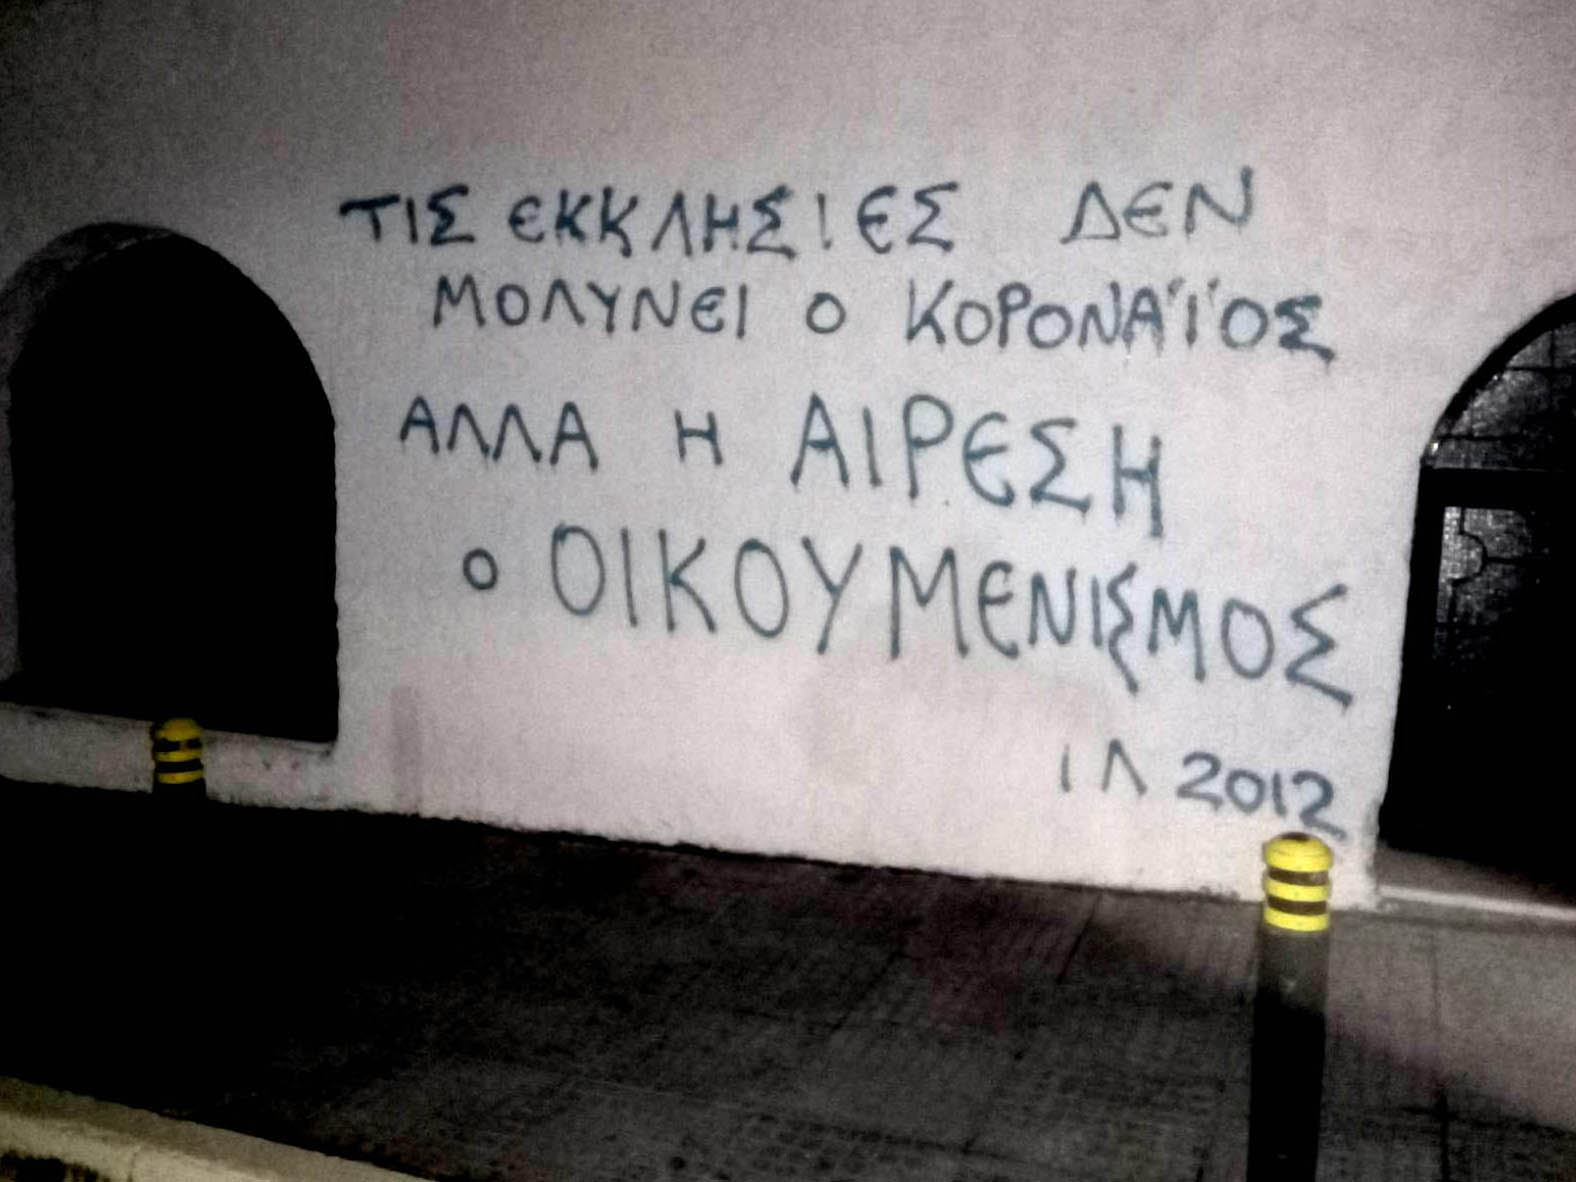 ΤΙΣ ΕΚΚΛΗΣΙΕΣ ΔΕΝ
ΜΟΛΥΝΕΙ Ο ΚΟΡΟΝΑΪΌΣ
ΑΛΛΑ Η ΑΙΡΕΣΗ
Ο ΟΙΚΟΥΜΕΝΙΣΜΟΣ
ΙΛ 2012